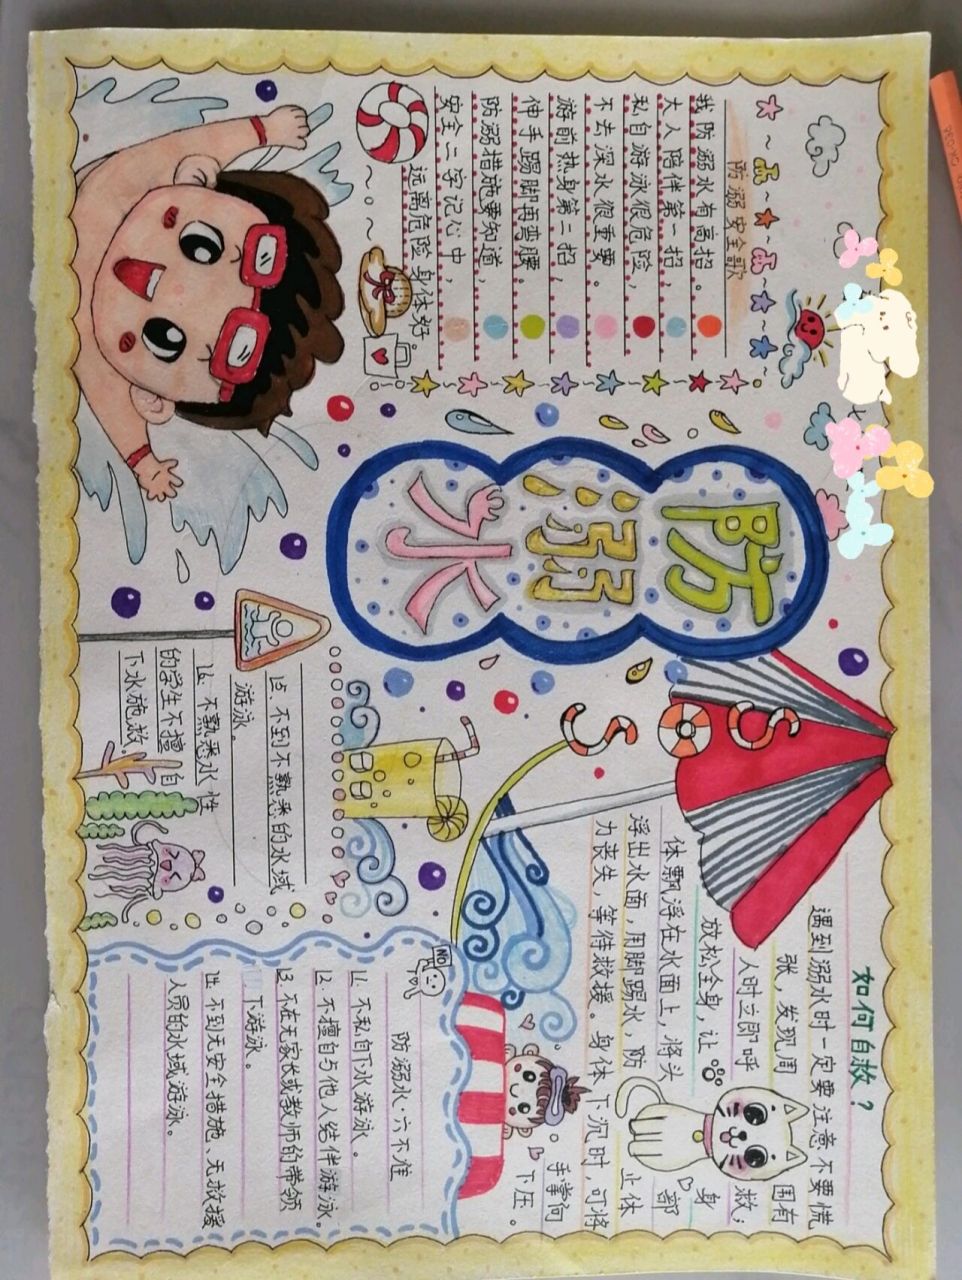 防溺安全歌
我防溺水有高招。
大人陪伴第一招,
私自游泳很危险,
不去深水很重要。
游前热身第二招,
伸手踢脚再弯腰。
防溺措施要知道,
安全二字记心中,
远离危险身体好。
防溺水
SOS
如何自救?
遇到溺水时一定要注意不要慌
张,发现周围有
人时立即呼救;
放松全身,让身
体飘浮在水面上,将头部
浮出水面,用脚踢水,防止体
力丧失,等待救援。身体下沉时,可将
手掌向
下压。
NO
防溺水·六不准
1. 不私自下水游泳。
2. 不擅自与他人结伴游泳。
3 不在无家长或教师的带领
下游泳。
4. 不到无安全措施、无救援
人员的水域游泳。
5 不到不熟悉的水域
游泳。
6 不熟悉水性
的学生不擅自
下水施救